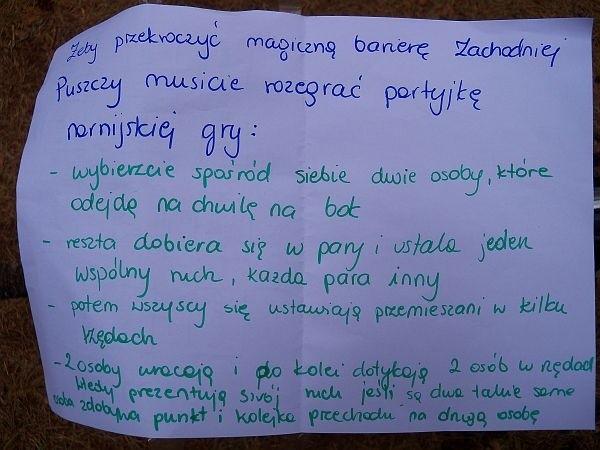 Żeby przekroczyć magiczną barierę Zachodniej
Puszczy musicie rozegrać partyjkę
narnijskiej gry:
- wybierzcie spośród siebie dwie osoby, które
odejdą na chwilę na bok
- reszta dobiera się w pary i ustala jeden
wspólny ruch, każda para inny
- potem wszyscy się ustawiają przemieszani w kilku
rzędach
- 2 osoby wracają i po kolei dotykają 2 osób w rzędach
Wtedy prezentują swój ruch jeśli są dwa takie same
osoba zdobywa punkt i kolejka przechodzi na drugą osobę